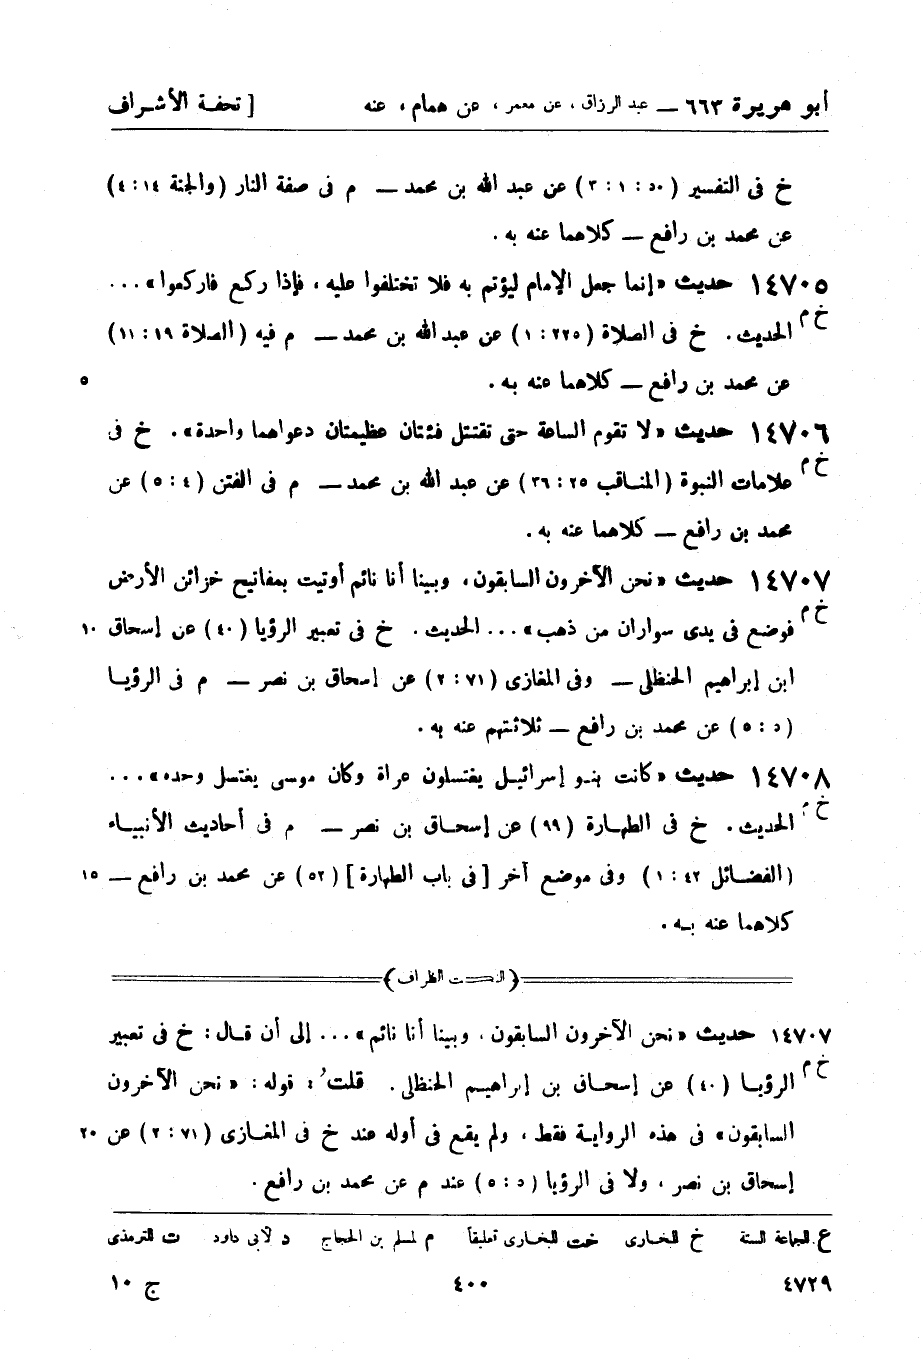 أبو هريرة ٦٦٣ ــ عبد الرزاق ، عن معمر ، عن همام ، عنه [ تحفة الأشراف
خ فى التفسير (٥٠ : ١ : ٣) عن عبد الله بن محمد ــ م فى صفة النار (والجنة ١٤ : ٤)
عن محمد بن رافع ــ كلاهما عنه به .
١٤٧٠٥ حديث «إنما جعل الإمام ليؤتم به فلا تختلفوا عليه ، فإذا ركع فاركعوا» ...
خ م الحديث . خ فى الصلاة (٢٢٥ : ١) عن عبد الله بن محمد ــ م فيه (الصلاة ١٩ : ١١)
عن محمد بن رافع ــ كلاهما عنه به . ٥
١٤٧٠٦ حديث «لا تقوم الساعة حتى تقتتل فئتان عظيمتان دعواهما واحدة» . خ فى
خ م علامات النبوة (المناقب ٢٥ : ٣٦) عن عبد الله بن محمد ــ م فى الفتن (٤ : ٥) عن
محمد بن رافع ــ كلاهما عنه به .
١٤٧٠٧ حديث «نحن الآخرون السابقون ، وبينا أنا نائم أوتيت بمفاتيح خزائن الأرض
خ م فوضع فى يدى سواران من ذهب» ... الحديث . خ فى تعبير الرؤيا (٤٠) عن إسحاق ١٠
ابن إبراهيم الحنظلى ــ وفى المغازى (٧١ : ٢) عن إسحاق بن نصر ــ م فى الرؤيا
(د : ٥) عن محمد بن رافع ــ ثلاثتهم عنه به .
١٤٧٠٨ حديث «كانت بنو إسرائيل يغتسلون عراة وكان موسى يغتسل وحده» ...
خ م الحديث . خ فى الطهارة (٩٩) عن إسحاق بن نصر ــ م فى أحاديث الأنبياء
(الفضائل ٤٢ : ١) وفى موضع آخر [فى باب الطهارة] (٥٢) عن محمد بن رافع ــ ١٥
كلاهما عنه به .
(النكت الظراف)
١٤٧٠٧ حديث «نحن الآخرون السابقون ، وبينا أنا نائم» ... إلى أن قال : خ فى تعبير
خ م الرؤيا (٤٠) عن إسحاق بن إبراهيم الحنظلى . قلتُ : قوله : «نحن الآخرون
السابقون» فى هذه الرواية فقط ، ولم يقع فى أوله عند خ فى المغازى (٧١ : ٢) عن ٢٠
إسحاق بن نصر ، ولا فى الرؤيا (د : ٥) عند م عن محمد بن رافع .
ع للجماعة الستة خ للبخارى خت للبخارى تعليقاً م لمسلم بن الحجاج د لأبى داود ت للترمذى
٤٧٢٩ ٤٠٠ ج ١٠